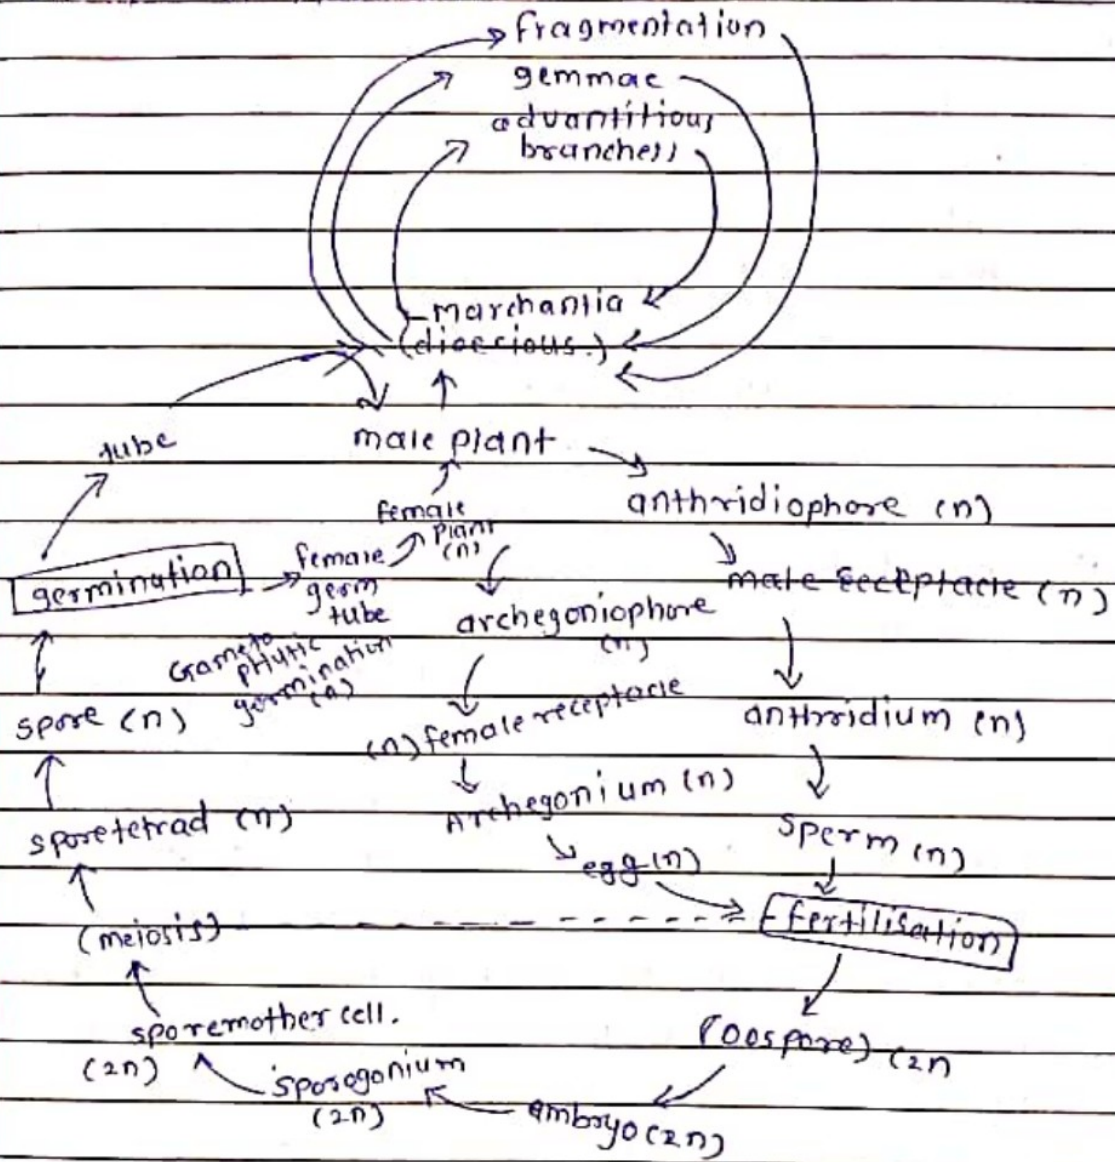 fragmentation
gemmae
advantitious
branchess
marchantia
(dioecious.)
tube
male plant
anthridiophore (n)
female
plant
(n)
germination
female
germ
tube
male receptacle (n)
archegoniophore
(n)
Gameto
phytic
germination
(n)
spore (n)
(n) female receptacle
anthridium (n)
Archegonium (n)
sporetetrad (n)
sperm (n)
egg (n)
(meiosis)
fertilisation
sporemother cell.
(2n)
(oospore) (2n
sporogonium
(2n)
embryo (2n)